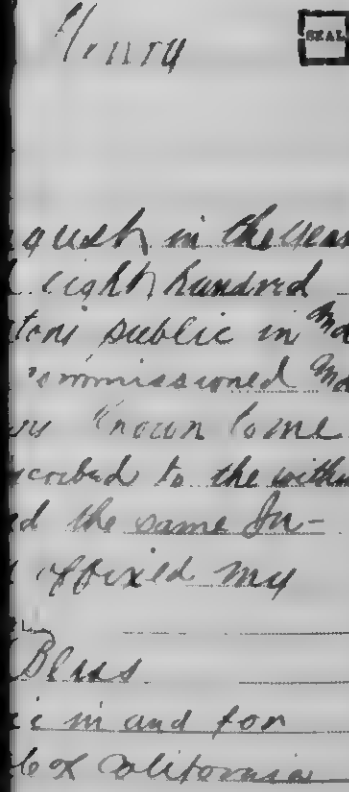 Henry SEAL
August in the year
eight hundred
public in and
commissioned and
known to me
scribed to the within
d the same In-
affixed my
Bliss
ic in and for
te of California